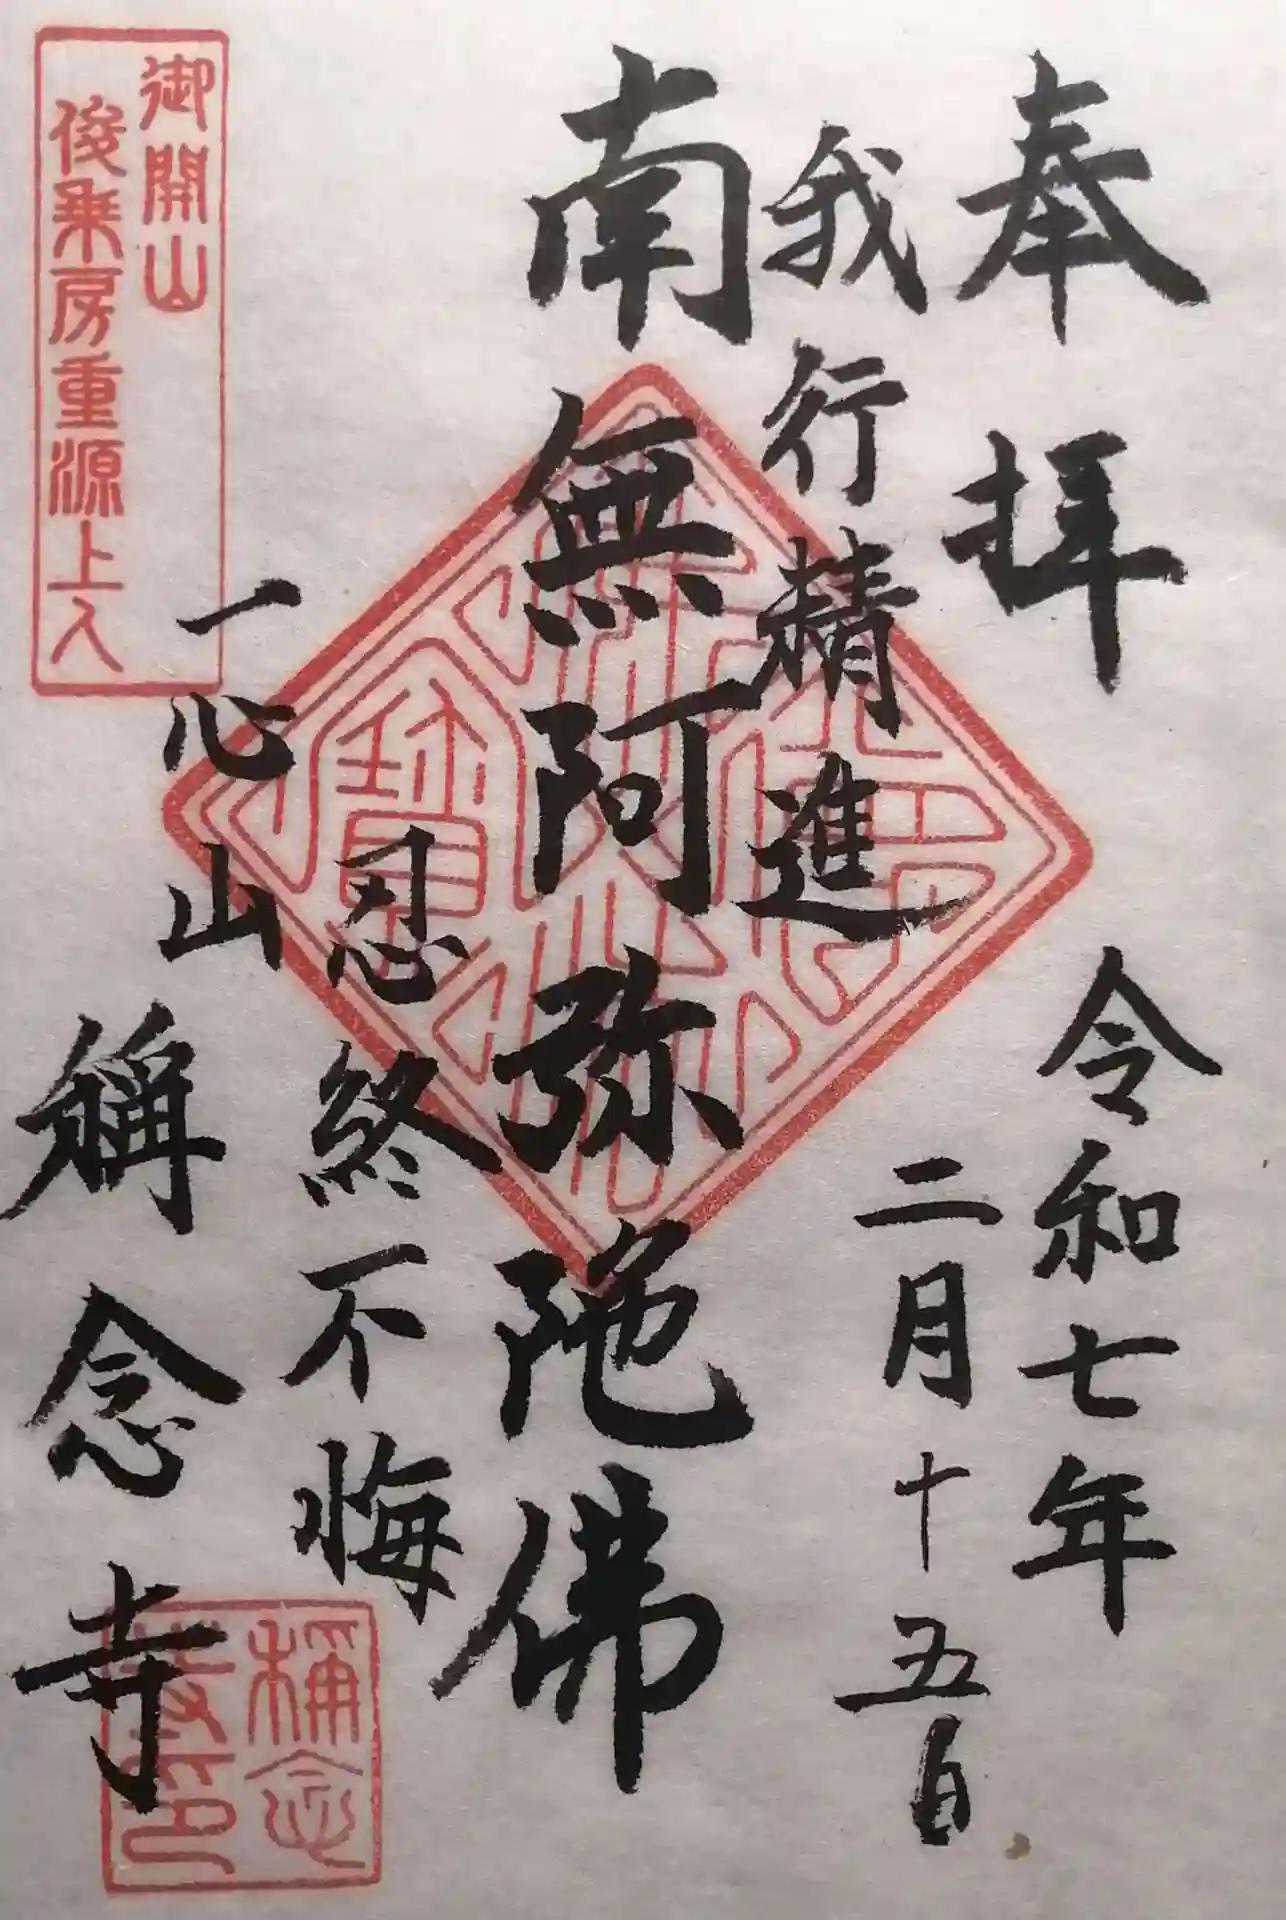 奉拝
令和七年
二月十五日
我行精進
南無阿弥陀佛
忍終不悔
一心山
稱念寺
御開山
俊乗房重源上人
稱念
寺印